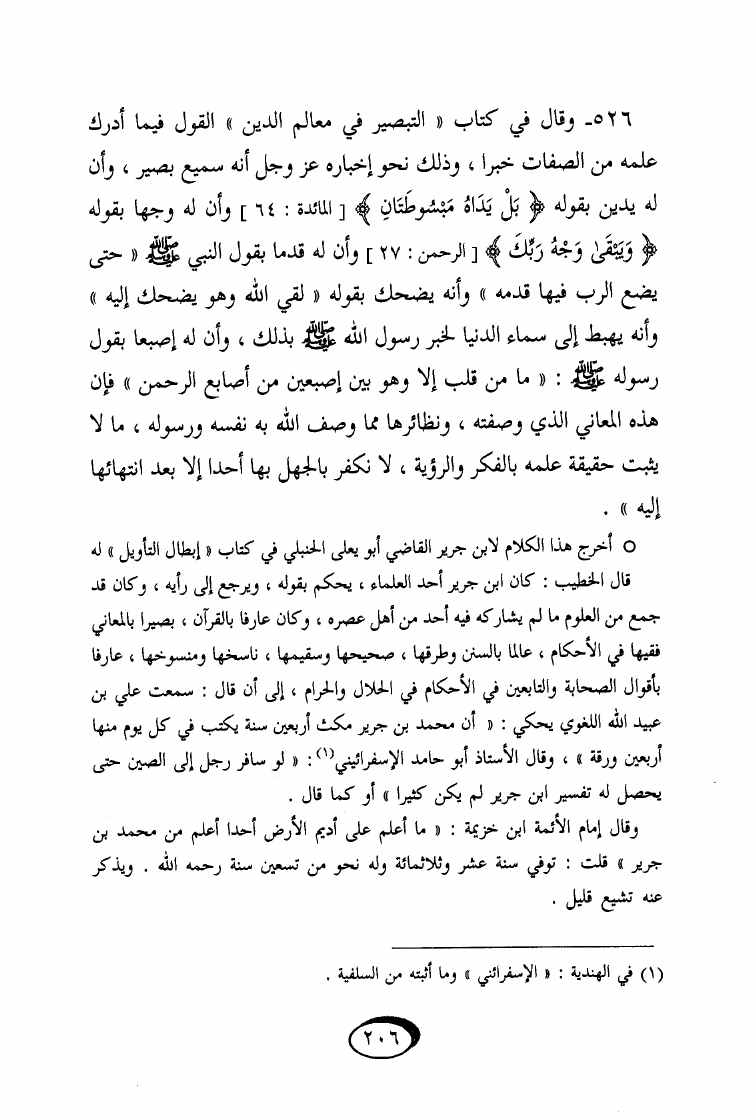 ٥٢٦ـ وقال في كتاب « التبصير في معالم الدين » القول فيما أدرك
علمه من الصفات خبرا ، وذلك نحو إخباره عز وجل أنه سميع بصير ، وأن
له يدين بقوله ﴿ بَلْ يَدَاهُ مَبْسُوطَتَانِ ﴾ [ المائدة : ٦٤ ] وأن له وجها بقوله
﴿ وَيَبْقَىٰ وَجْهُ رَبِّكَ ﴾ [ الرحمن : ٢٧ ] وأن له قدما بقول النبي ﷺ « حتى
يضع الرب فيها قدمه » وأنه يضحك بقوله « لقي الله وهو يضحك إليه »
وأنه يهبط إلى سماء الدنيا لخبر رسول الله ﷺ بذلك ، وأن له إصبعا بقول
رسوله ﷺ : « ما من قلب إلا وهو بين إصبعين من أصابع الرحمن » فإن
هذه المعاني الذي وصفته ، ونظائرها مما وصف الله به نفسه ورسوله ، ما لا
يثبت حقيقة علمه بالفكر والرؤية ، لا نكفر بالجهل بها أحدا إلا بعد انتهائها
إليه » .
○ أخرج هذا الكلام لابن جرير القاضي أبو يعلى الحنبلي في كتاب « إبطال التأويل » له
قال الخطيب : كان ابن جرير أحد العلماء ، يحكم بقوله ، ويرجع إلى رأيه ، وكان قد
جمع من العلوم ما لم يشاركه فيه أحد من أهل عصره ، وكان عارفا بالقرآن ، بصيرا بالمعاني
فقيها في الأحكام ، عالما بالسنن وطرقها ، صحيحها وسقيمها ، ناسخها ومنسوخها ، عارفا
بأقوال الصحابة والتابعين في الأحكام في الحلال والحرام ، إلى أن قال : سمعت علي بن
عبيد الله اللغوي يحكي : « أن محمد بن جرير مكث أربعين سنة يكتب في كل يوم منها
أربعين ورقة » ، وقال الأستاذ أبو حامد الإسفرائيني(١) : « لو سافر رجل إلى الصين حتى
يحصل له تفسير ابن جرير لم يكن كثيرا » أو كما قال .
وقال إمام الأئمة ابن خزيمة : « ما أعلم على أديم الأرض أحدا أعلم من محمد بن
جرير » قلت : توفي سنة عشر وثلاثمائة وله نحو من تسعين سنة رحمه الله . ويذكر
عنه تشيع قليل .
(١) في الهندية : « الإسفرائني » وما أثبته من السلفية .
٢٠٦